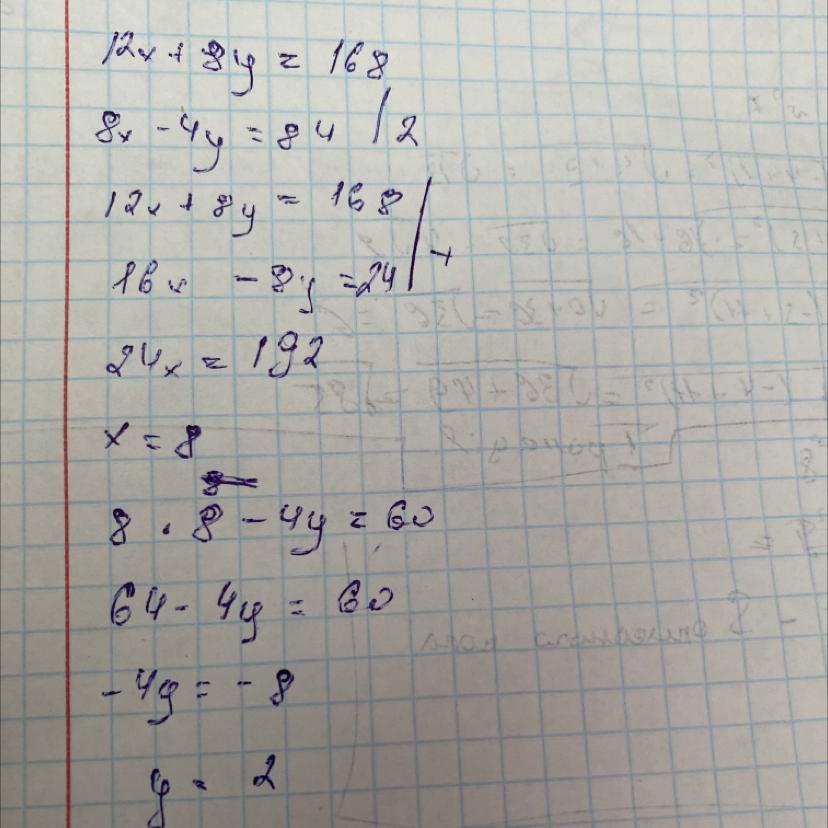 12x + 8y = 168
8x - 4y = 84 | 2
12x + 8y = 168
16x - 8y = 24 | +
24x = 192
x = 8
8 · 8 - 4y = 60
64 - 4y = 60
-4y = -8
y = 2